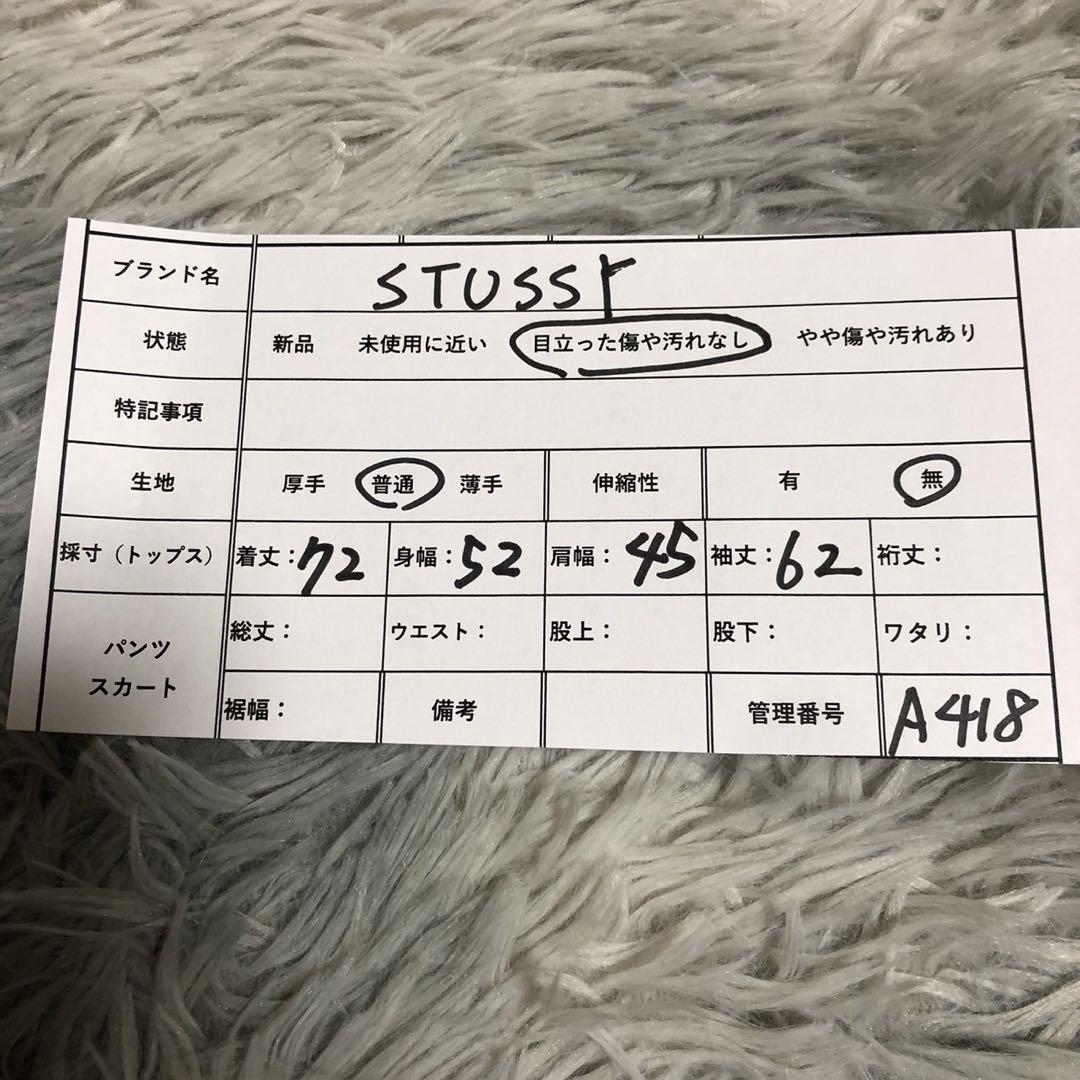 ブランド名 STUSSY
状態 新品 未使用に近い 目立った傷や汚れなし やや傷や汚れあり
特記事項
生地 厚手 普通 薄手 伸縮性 有 無
採寸（トップス） 着丈：72 身幅：52 肩幅：45 袖丈：62 裄丈：
パンツ
スカート
総丈： ウエスト： 股上： 股下： ワタリ：
裾幅： 備考 管理番号 A418